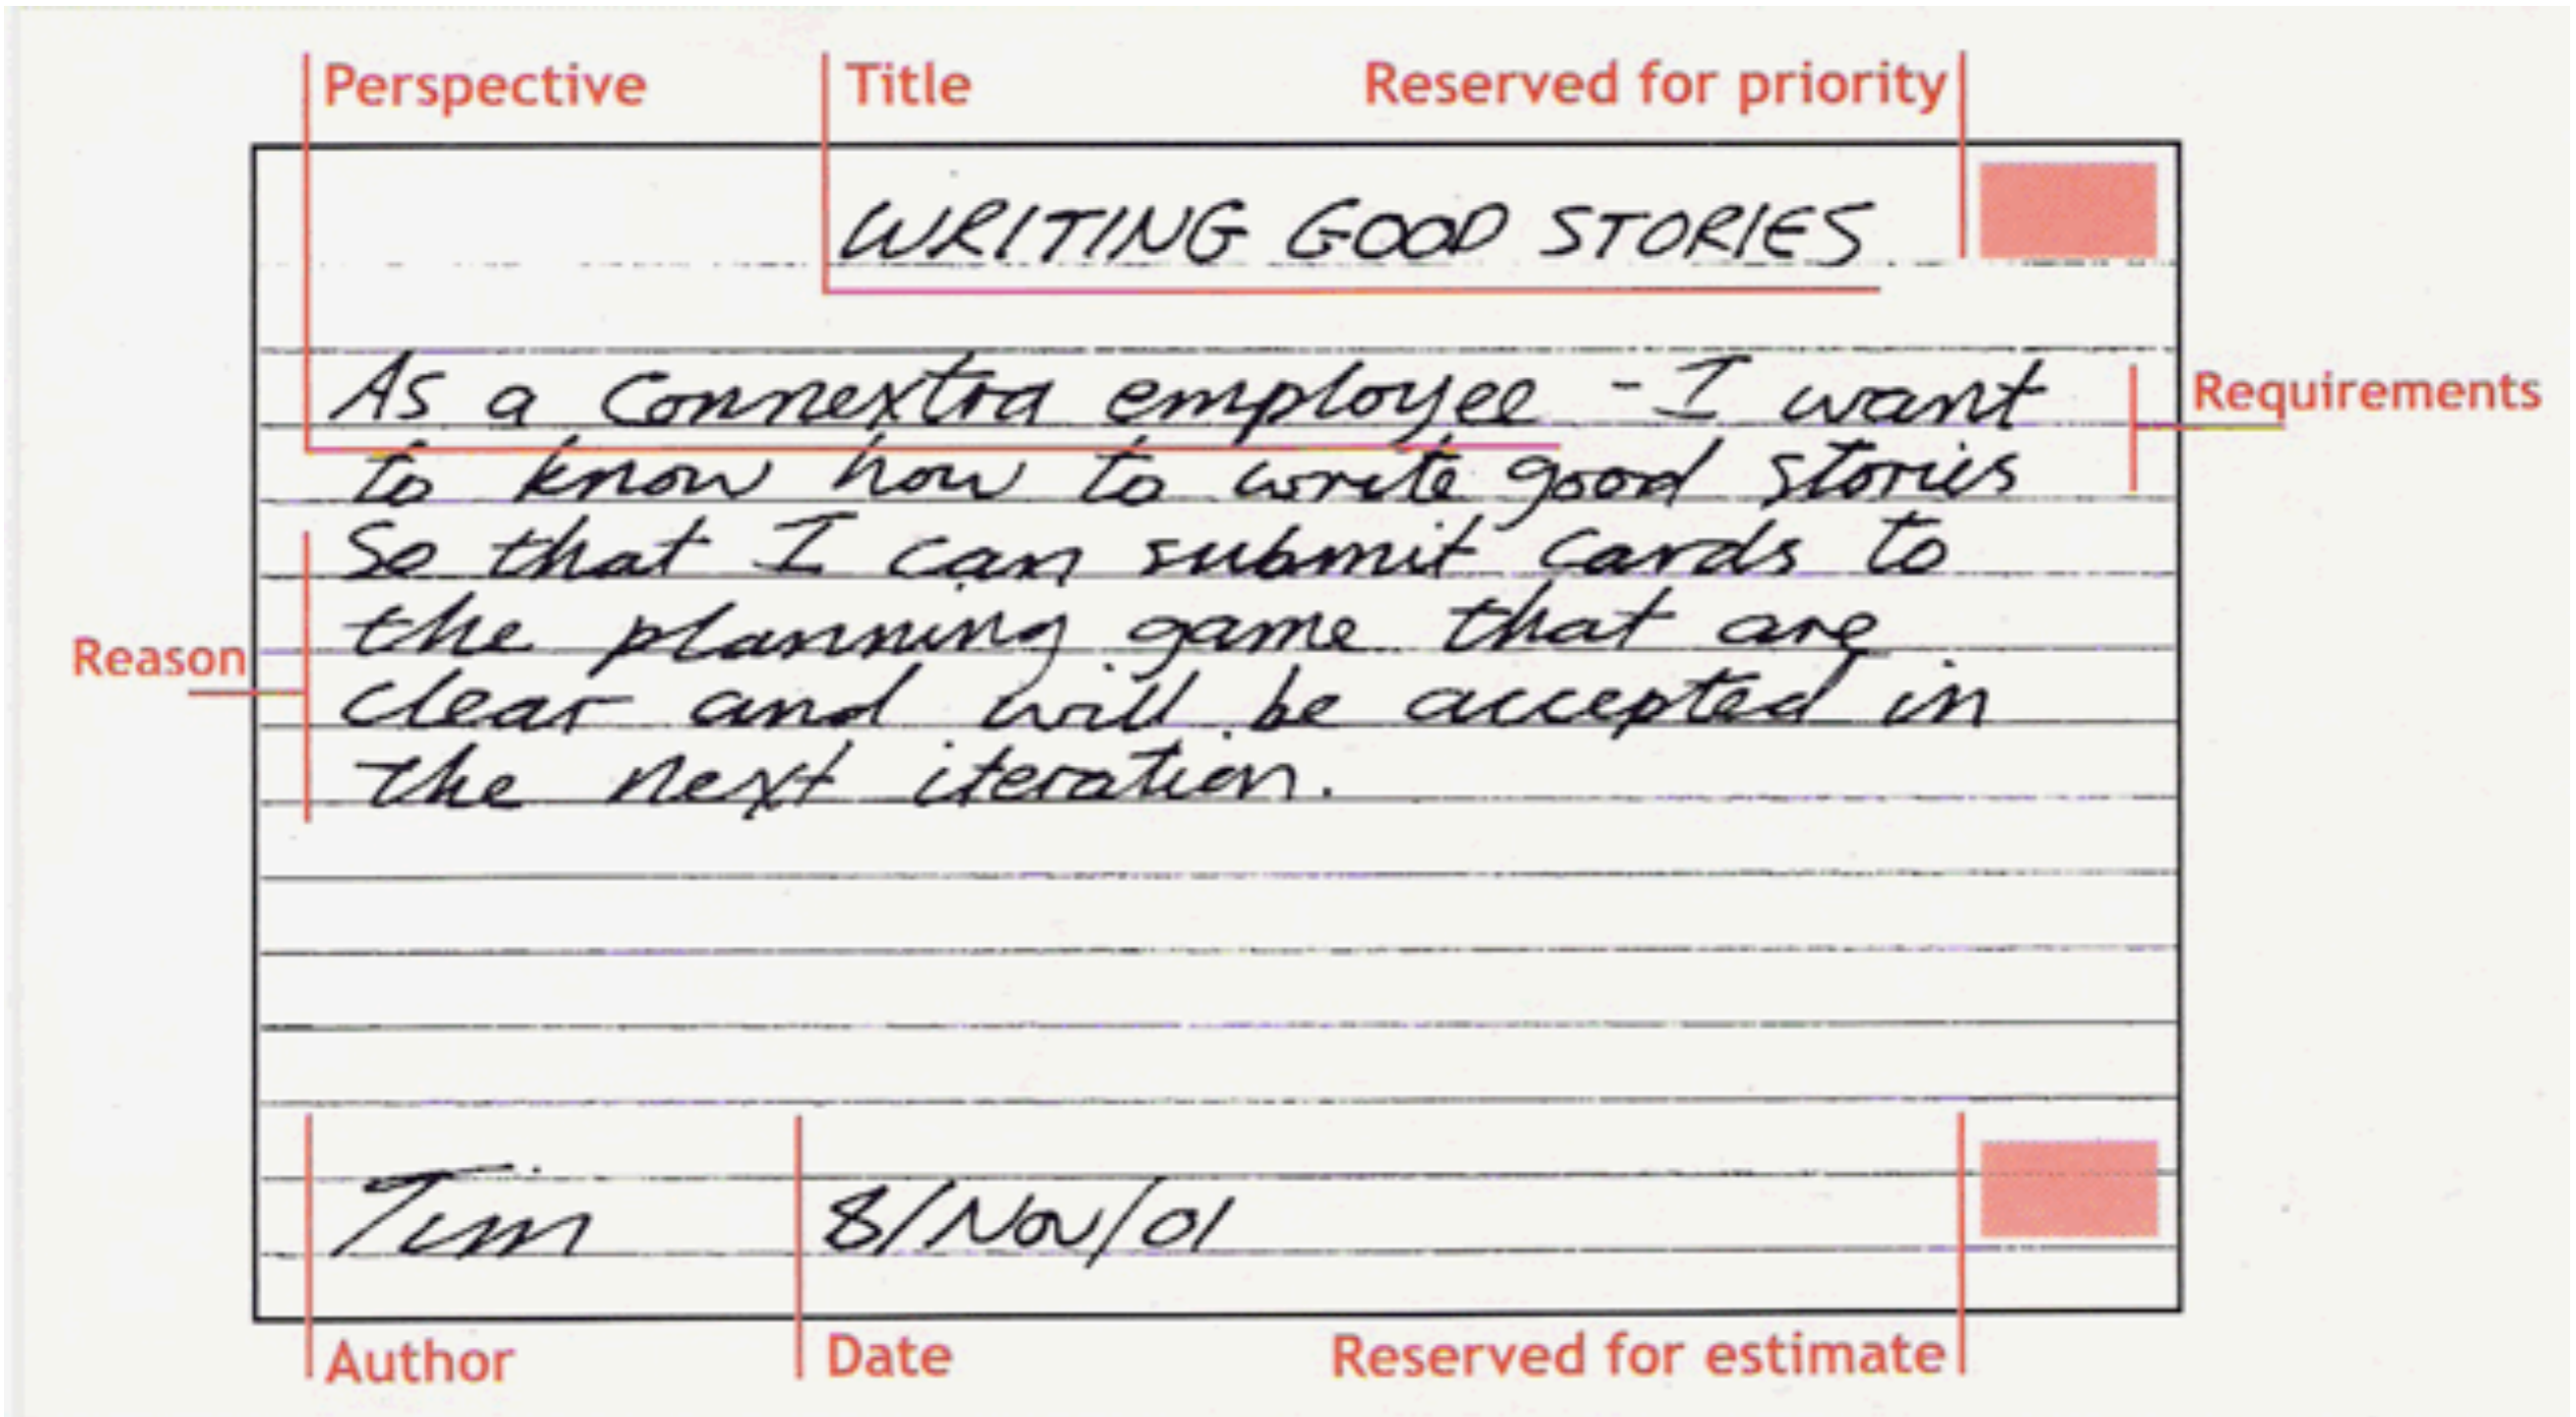 Perspective
Title
Reserved for priority
WRITING GOOD STORIES
As a Connextra employee - I want
Requirements
to know how to write good stories
So that I can submit cards to
the planning game that are
Reason
clear and will be accepted in
the next iteration.
Tim
8/Nov/01
Author
Date
Reserved for estimate